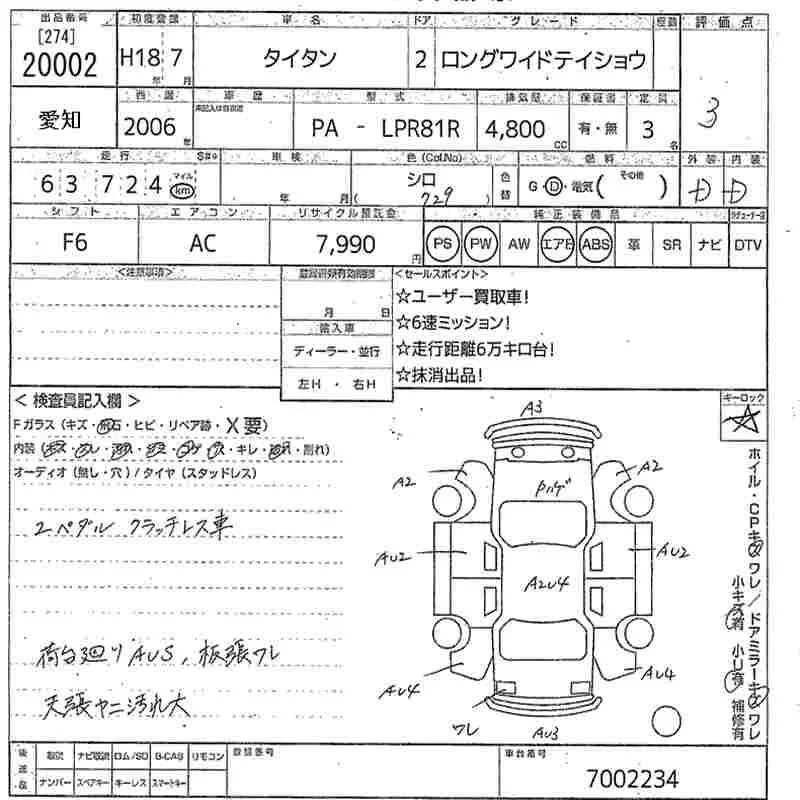 出品番号 初度登録 車名 ドア グレード 評価点
[274]
20002 H18 7 タイタン 2 ロングワイドテイショウ
年 月
西暦 車歴 型式 排気量 保証書 定員
未記入は自家用
愛知 2006 年 PA - LPR81R 4,800 CC 有・無 3 名 3
走行 S#※ 車検 色(Col.No) 燃料 外装 内装
63,724 マイル km 年 月 シロ ( 729 ) 色替 G・D・電気( その他 ) D D
シフト エアコン リサイクル預託金 純正装備品
F6 AC 7,990 円 PS PW AW エアB ABS 革 SR ナビ DTV
<注意事項> <セールスポイント>
☆ユーザー買取車!
月 日
☆6速ミッション!
輸入車
ディーラー・並行 ☆走行距離6万キロ台!
左H ・ 右H ☆抹消出品!
<検査員記入欄> キーロック
Fガラス(キズ・飛石・ヒビ・リペア跡・X要)
内装( ・キレ・ ・割れ)
オーディオ(無し・穴)/タイヤ(スタッドレス)
A3
A2 A2
Pハゲ
2ペダル クラッチレス車
AU2 AU2
A2U4
荷台廻りAUS、板張ワレ
AU4 AU4
天張ヤニ汚れ大
ワレ AU3
ホイル・CPキズワレ/ドアミラーキズワレ
小キズ有 小U有 補修有
後送品 取説 ナビ取説 ロム/SD B-CAS リモコン 登録番号 車台番号
ナンバー スペアキー キーレス スマートキー 7002234